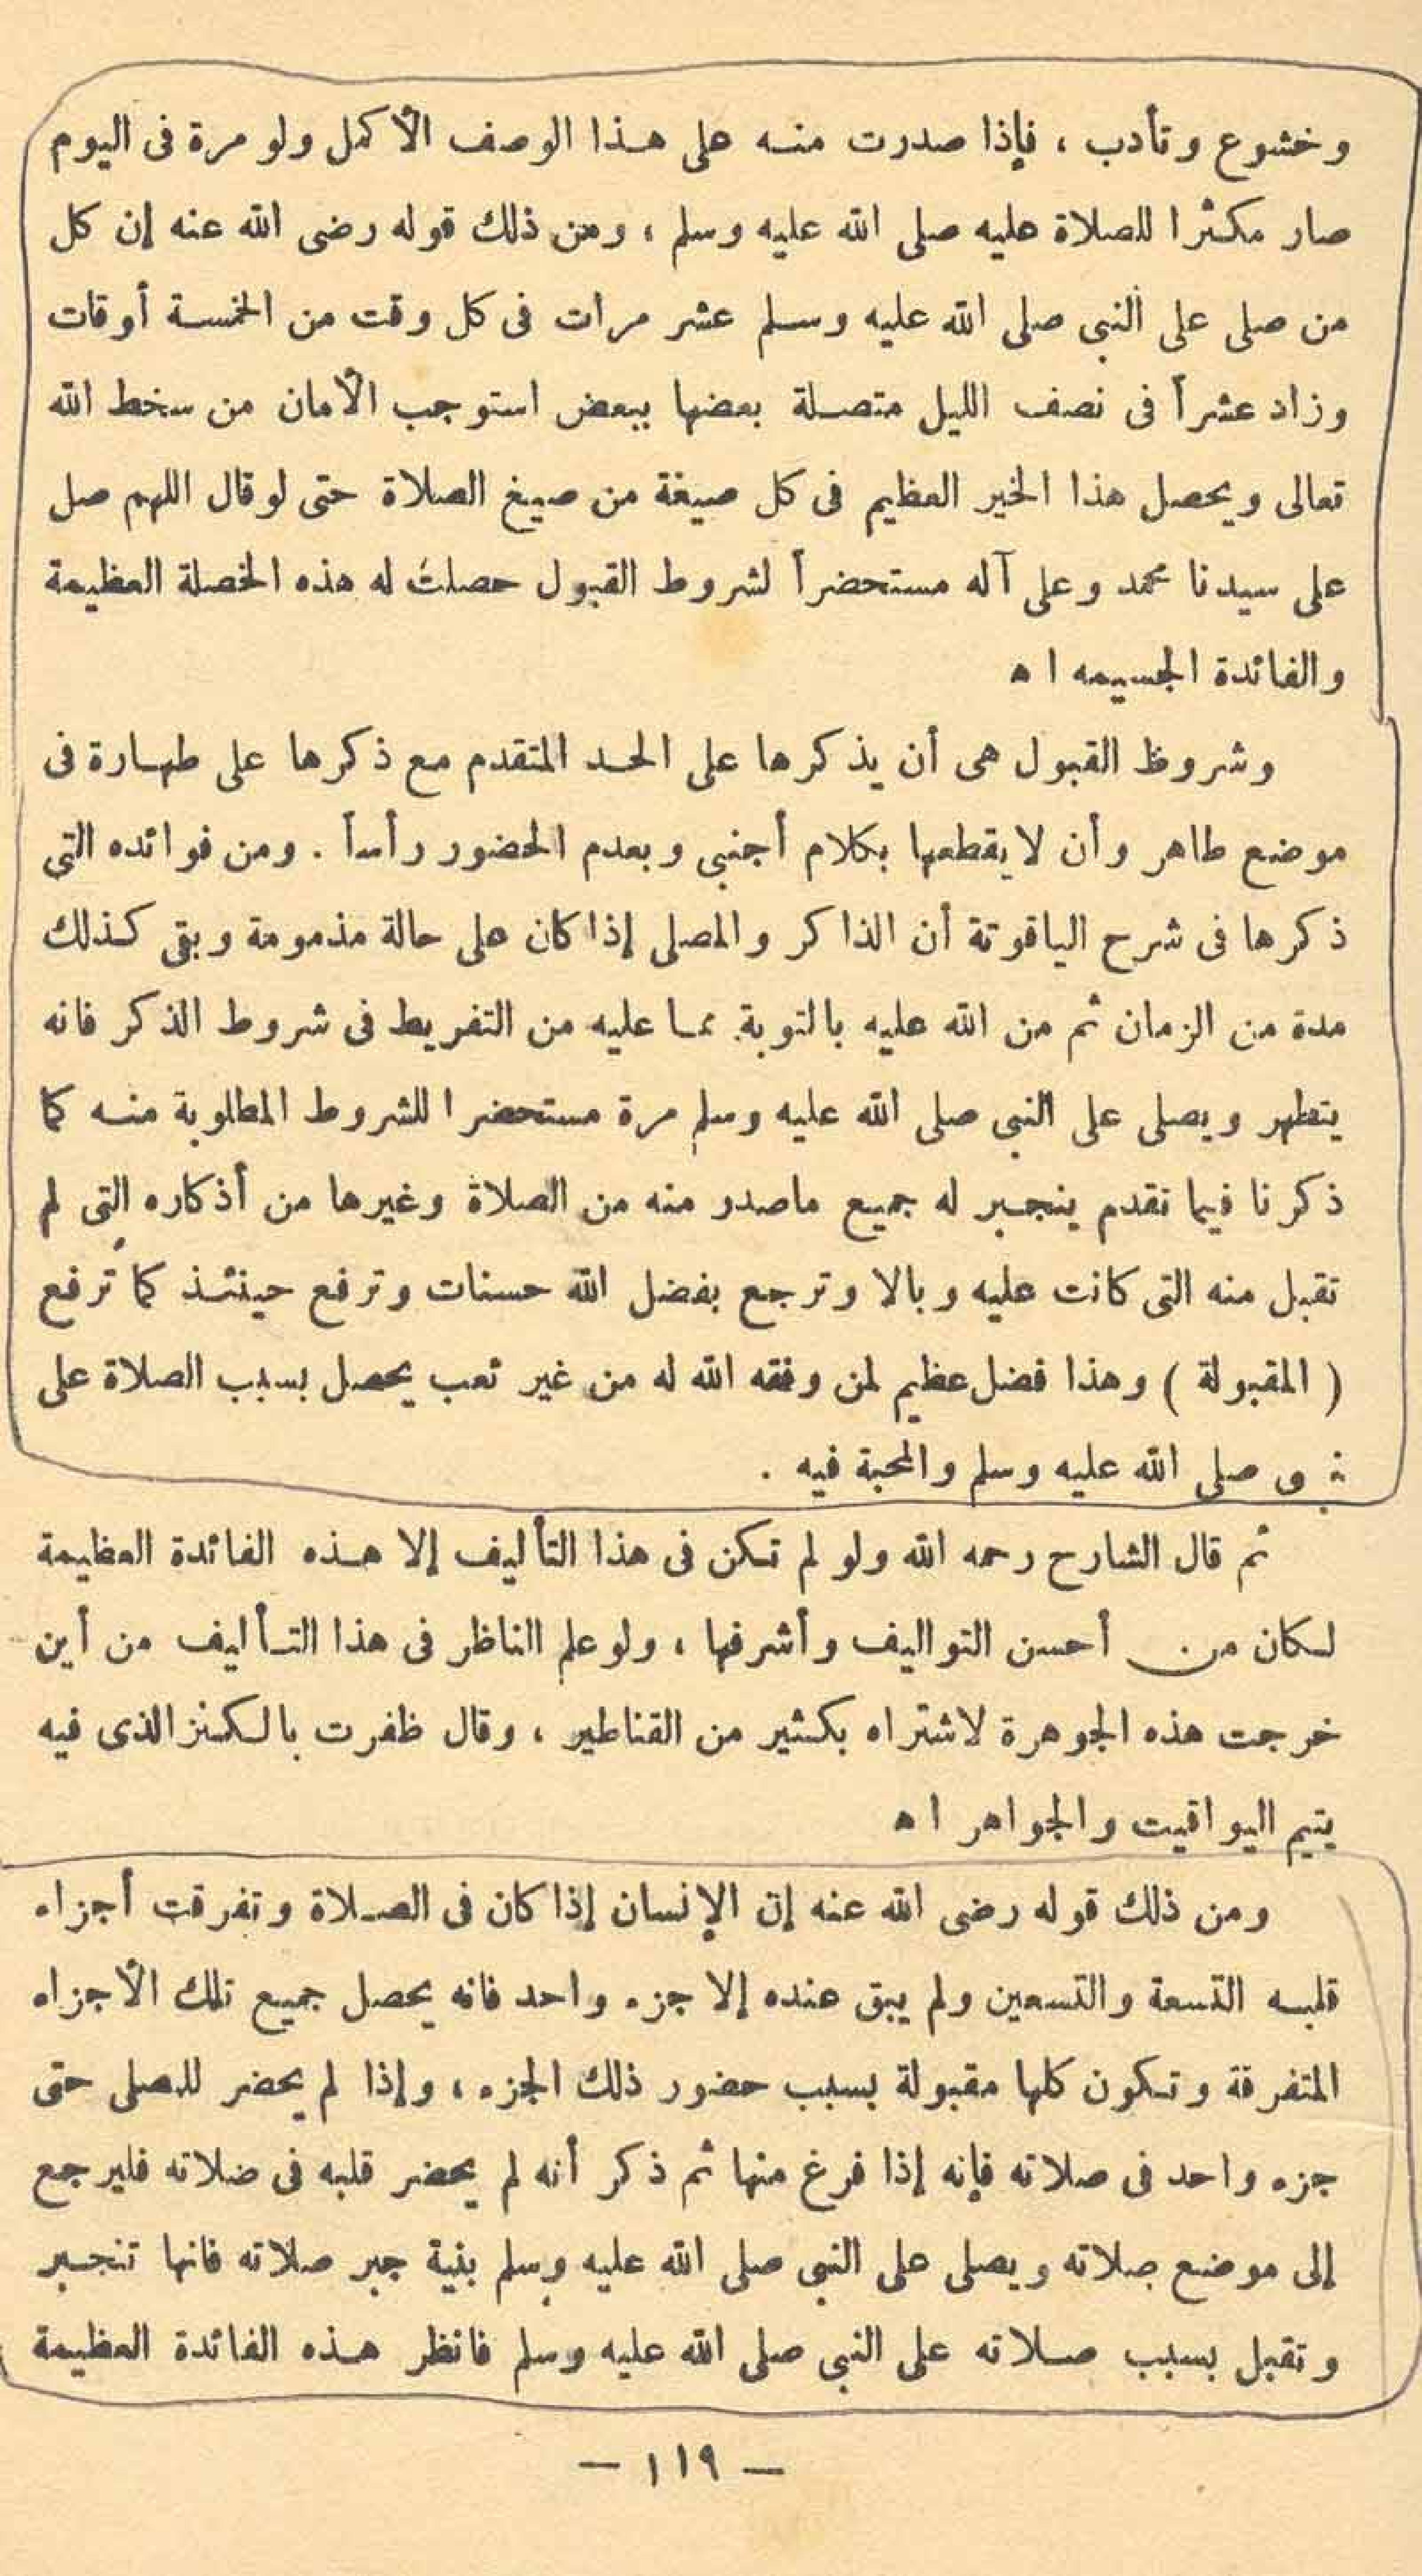 وخشوع وتأدب ، فإذا صدرت منه على هذا الوصف الأكمل ولو مرة فى اليوم
صار مكثرا للصلاة عليه صلى الله عليه وسلم ، ومن ذلك قوله رضى الله عنه إن كل
من صلى على النبى صلى الله عليه وسلم عشر مرات فى كل وقت من الخمسة أوقات
وزاد عشراً فى نصف الليل متصلة بعضها ببعض استوجب الأمان من سخط الله
تعالى ويحصل هذا الخير العظيم فى كل صيغة من صيغ الصلاة حتى لو قال اللهم صل
على سيدنا محمد وعلى آله مستحضراً لشروط القبول حصلت له هذه الخصلة العظيمة
والفائدة الجسيمه اه
وشروظ القبول هى أن يذكرها على الحد المتقدم مع ذكرها على طهارة فى
موضع طاهر وأن لا يقطعها بكلام أجنبي وبعدم الحضور رأساً . ومن فوائده التى
ذكرها فى شرح الياقوتة أن الذاكر والمصلى إذا كان على حالة مذمومة وبقى كذلك
مدة من الزمان ثم من الله عليه بالتوبة مما عليه من التفريط فى شروط الذكر فانه
يتطهر ويصلى على النبى صلى الله عليه وسلم مرة مستحضرا للشروط المطلوبة منه كما
ذكرنا فيما تقدم ينجبر له جميع ماصدر منه من الصلاة وغيرها من أذكاره التى لم
تقبل منه التى كانت عليه وبالا وترجع بفضل الله حسنات وترفع حينئذ كما ترفع
( المقبولة ) وهذا فضل عظيم لمن وفقه الله له من غير تعب يحصل بسبب الصلاة على
صلى الله عليه وسلم والمحبة فيه .
ثم قال الشارح رحمه الله ولو لم تكن فى هذا التأليف إلا هذه الفائدة العظيمة
لكان من أحسن التواليف وأشرفها ، ولو علم الناظر فى هذا التأليف من أين
خرجت هذه الجوهرة لاشتراه بكثير من القناطير ، وقال ظفرت بالكنز الذى فيه
يتيم اليواقيت والجواهر اه
ومن ذلك قوله رضى الله عنه إن الإنسان إذا كان فى الصلاة وتفرقت أجزاء
قلبه التسعة والتسعين ولم يبق عنده إلا جزء واحد فانه يحصل جميع تلك الأجزاء
المتفرقة وتكون كلها مقبولة بسبب حضور ذلك الجزء ، وإذا لم يحضر للمصلى حتى
جزء واحد فى صلاته فإنه إذا فرغ منها ثم ذكر أنه لم يحضر قلبه فى ضلاته فليرجع
إلى موضع صلاته ويصلى على النبى صلى الله عليه وسلم بنية جبر صلاته فانها تنجبر
وتقبل بسبب صلاته على النبى صلى الله عليه وسلم فانظر هذه الفائدة العظيمة
— ١١٩ —